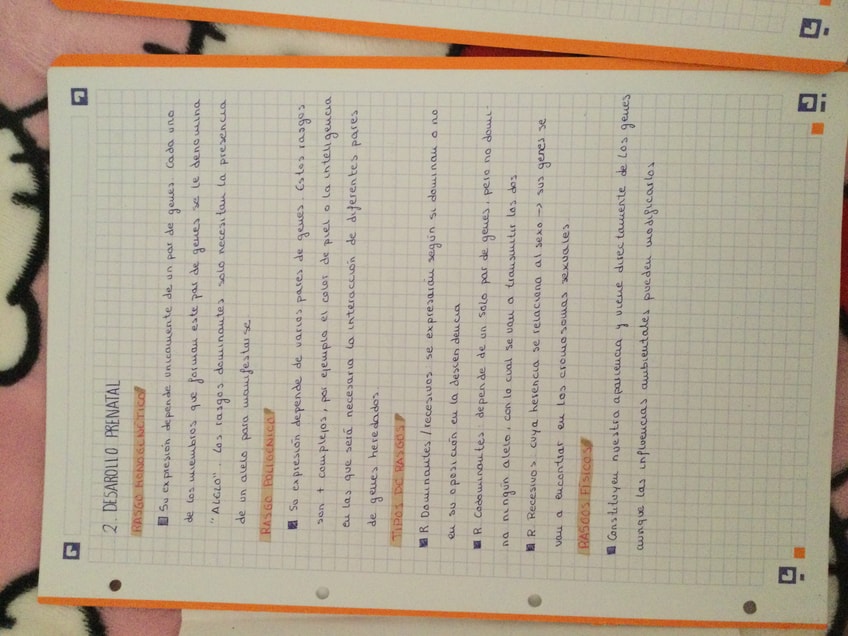 2. DESAROLLO PRENATAL
RASGO MONOGENÓTICO
Su expresión depende unicamente de un par de genes. Cada uno
de los miembros que forman este par de genes se le denomina
"ALELO". Los rasgos dominantes solo necesitan la presencia
de un alelo para manifestarse
RASGO POLIGÉNICO
Su expresión depende de varios pares de genes. Estos rasgos
son + complejos, por ejemplo el color de piel o la inteligencia
en las que será necesaria la interacción de diferentes pares
de genes heredados
TIPOS DE RASGOS
R Dominantes/recesivos se expresarán según si dominan o no
en su oposición en la descendencia
R. Codominantes: depende de un solo par de genes, pero no domi-
na ningún alelo, con lo cual se van a transmitir los dos
R. Recesivos: cuya herencia se relaciona al sexo → sus genes se
van a encontrar en los cromosomas sexuales
RASGOS FÍSICOS
Constituyen nuestra apariencia y viene directamente de los genes
aunque las influencias ambientales pueden modificarlos